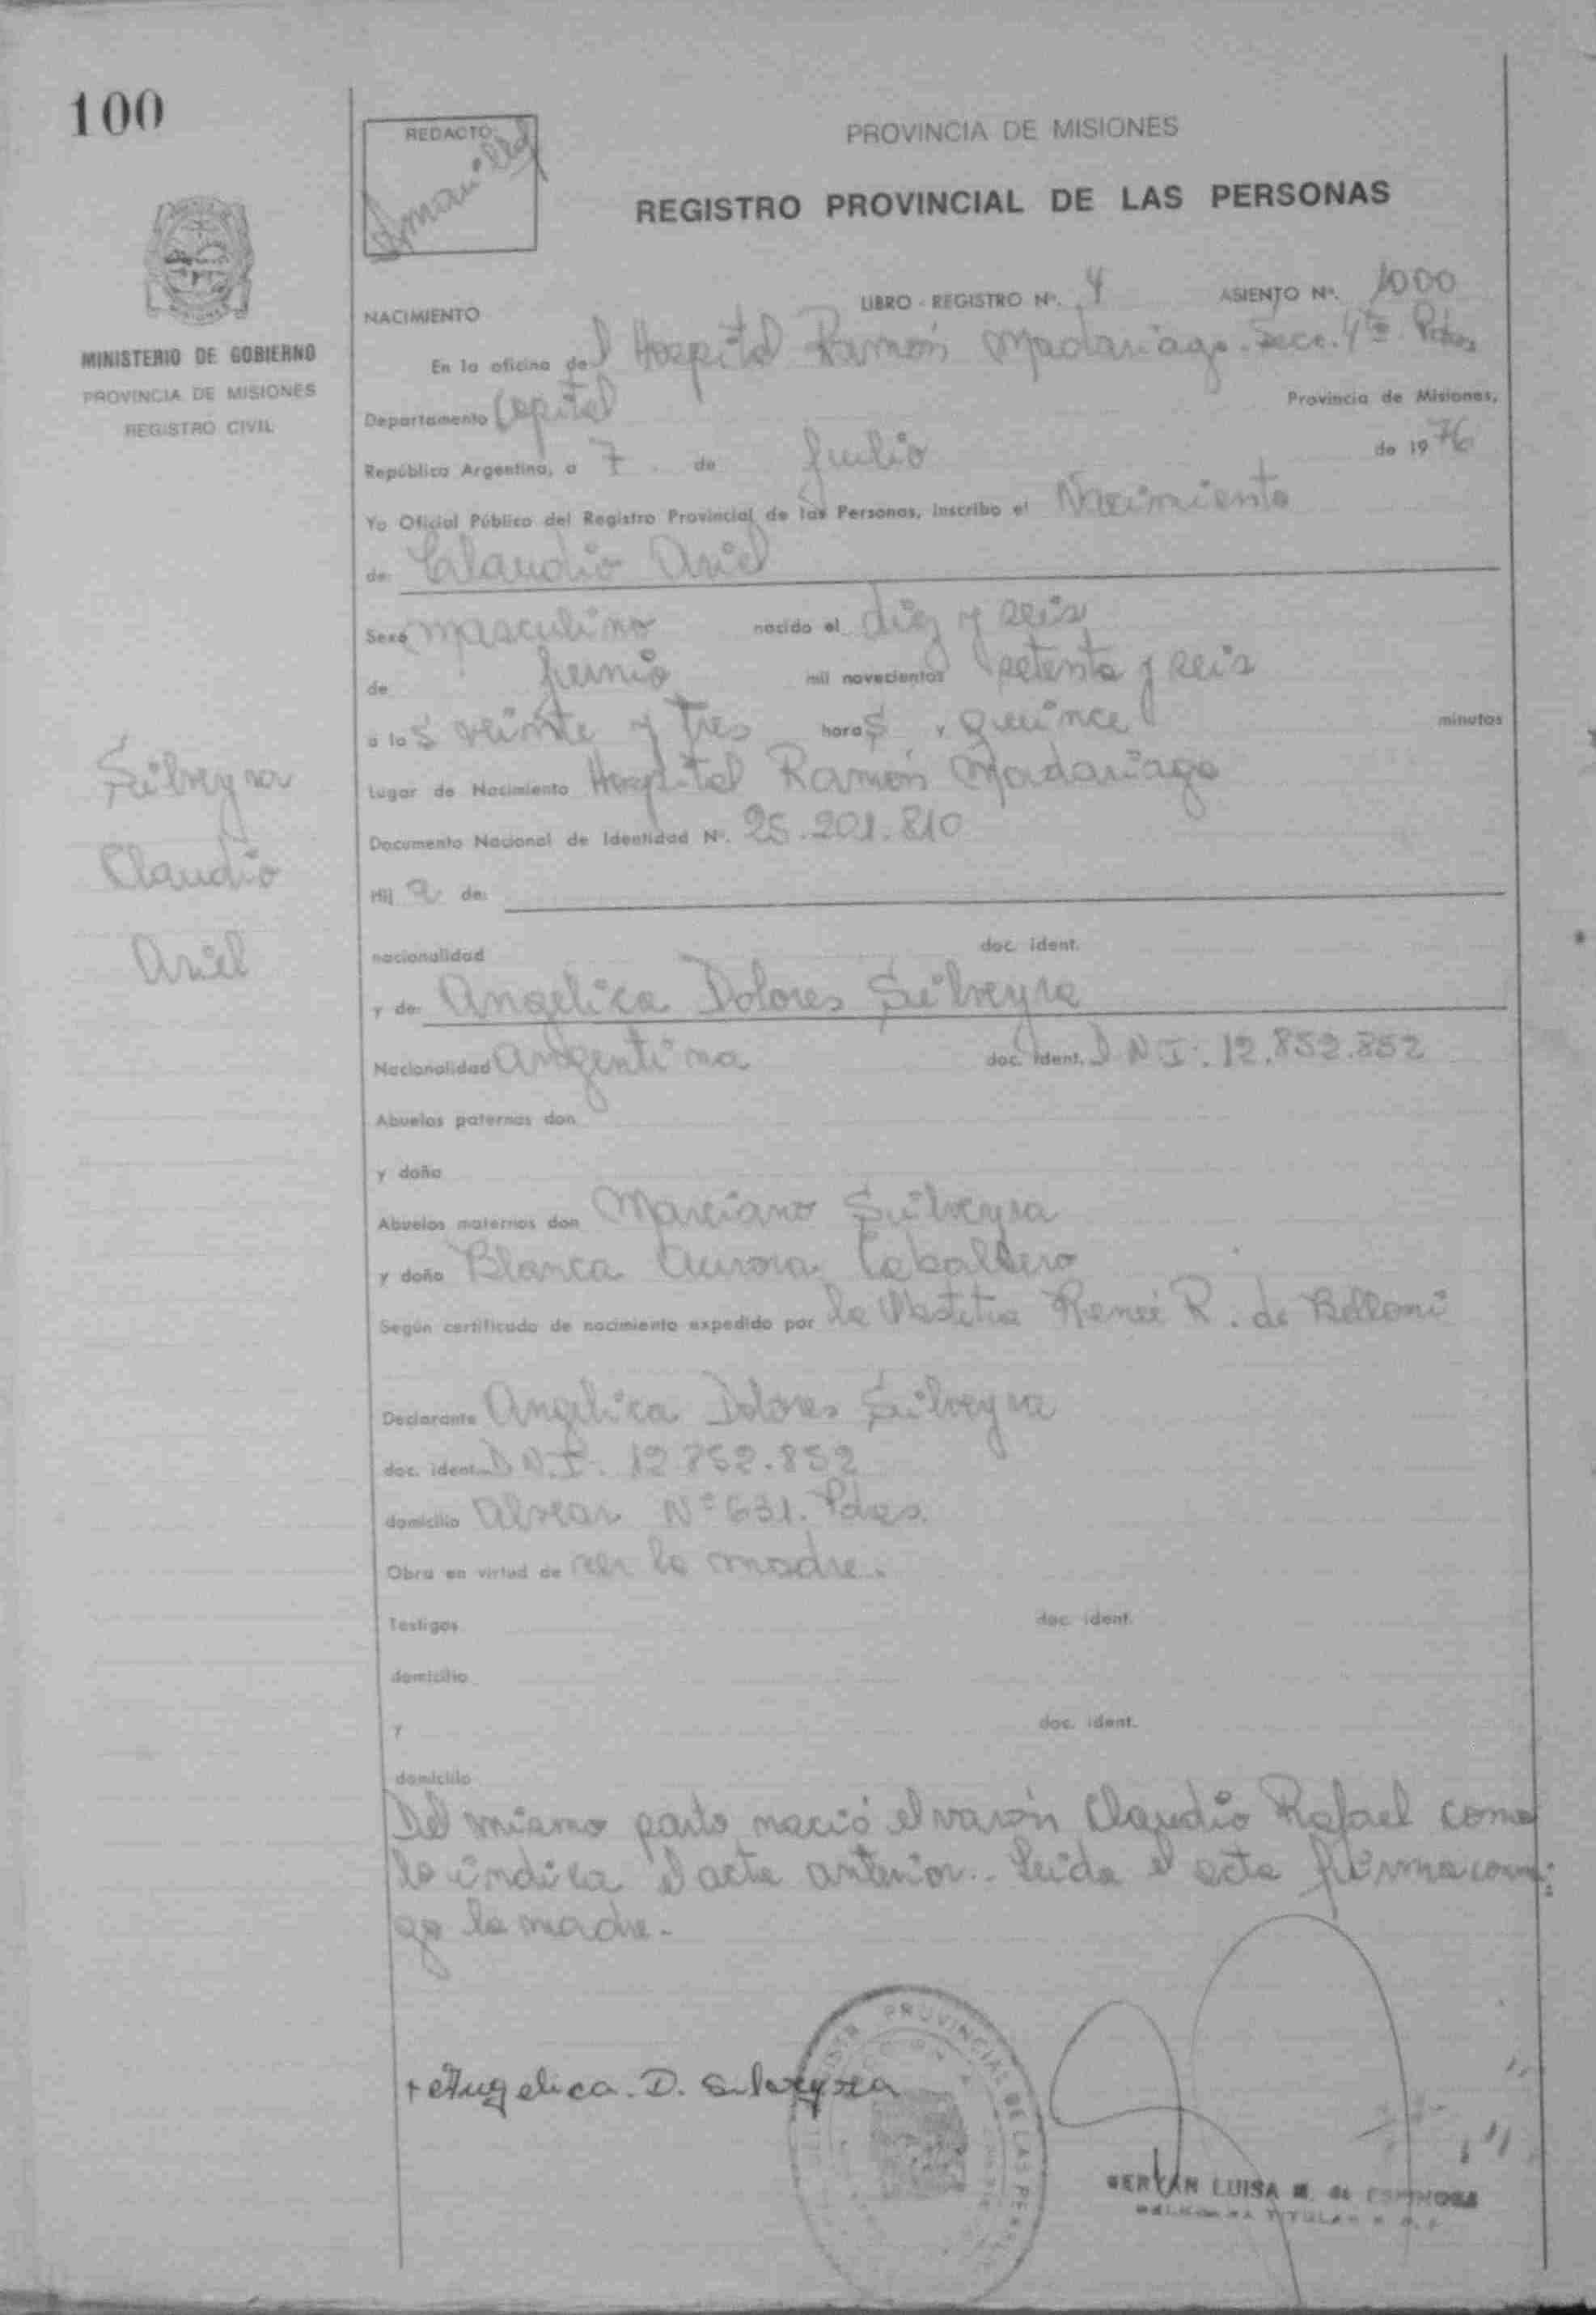 100
REDACTO:
PROVINCIA DE MISIONES
REGISTRO PROVINCIAL DE LAS PERSONAS
MINISTERIO DE GOBIERNO
PROVINCIA DE MISIONES
REGISTRO CIVIL
LIBRO - REGISTRO Nº. 4 ASIENTO Nº. 1000
NACIMIENTO
En la oficina del Hospital Ramón Madariaga. Secc. 4ta. Pdas
Departamento Capital Provincia de Misiones,
República Argentina, a 7. de Julio de 1976
Yo Oficial Público del Registro Provincial de las Personas, inscribo el Nacimiento
de: Claudio Ariel
Sexo masculino nacido el diez y seis
de junio mil novecientos setenta y seis
a las veinte y tres horas y quince minutos
Lugar de Nacimiento Hospital Ramón Madariaga
Documento Nacional de Identidad Nº. 25.201.810
Hij o de:
nacionalidad doc. ident.
y de: Angelica Dolores Silveyra
Nacionalidad argentina doc. ident. D N I. 12.852.852
Abuelos paternos don
y doña
Abuelos maternos don Marciano Silveyra
y doña Blanca Aurora Caballero
Según certificado de nacimiento expedido por la Obstetra Reneé R. de Belloni
Declarante Angelica Dolores Silveyra
doc. ident. D N.I. 12 852.852
domicilio Alvear Nº 631. Pdas.
Obra en virtud de ser la madre.
Testigos doc. ident.
domicilio
y doc. ident.
domicilio
Del mismo parto nació el varón Claudio Rafael como
lo indica el acta anterior.. Leida el acta firma conmi:
go la madre.-
Silveyra
Claudio
Ariel
Angelica. D. Silveyra
PROVINCIAL DE LAS
LUISA M. de ESPINOSA
TITULAR